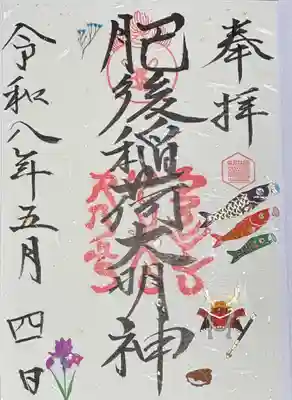 奉拝
肥後稲荷大明神
令和八年五月四日